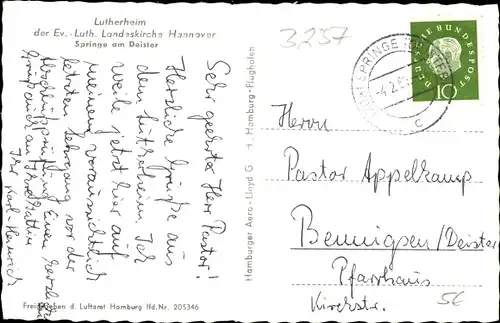 Lutherheim
der Ev.-Luth. Landeskirche Hannover
Springe am Deister
Sehr geehrter Herr Pastor!
Herzliche Grüße aus
dem Lutherheim. Ich
weile jetzt hier auf
meinem voraussichtlich
letzten Lehrgang vor der
Abschlußprüfung. Einen herzlichen
Gruß auch an Ihre Gattin
Ihr Karl Heinrich
Freigegeben d. Luftamt Hamburg lfd. Nr. 205346
Hamburger Aero-Lloyd G H, Hamburg-Flughafen
3257
SPRINGE
-4.2.
c
DEUTSCHE BUNDESPOST
10
Herrn
Pastor Appelkamp
Bennigsen/Deister
Pfarrhaus
Kirchstr.
5E